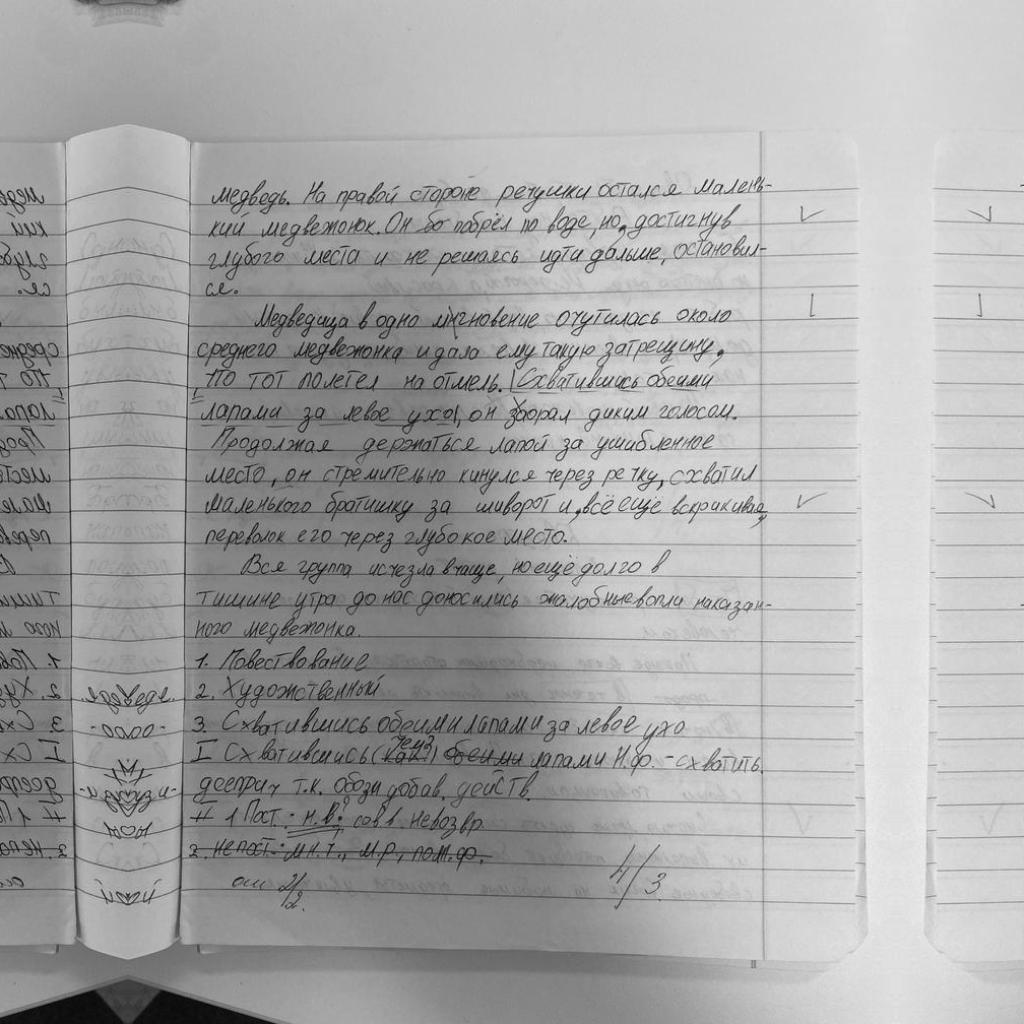 медведь. На правой стороне речушки остался малень-
кий медвежонок. Он бо побрёл по воде, но, достигнув
глубого места и не решаясь идти дальше, остановил-
ся.
Медведица в одно мгновение очутилась около
среднего медвежонка и дала ему такую затрещину,
что тот полетел на отмель. Схватившись обеими
лапами за левое ухо, он заорал диким голосом.
Продолжая держаться лапой за ушибленное
место, он стремительно кинулся через речку, схватил
маленького братишку за шиворот и, всё ещё вскрикивая,
переволок его через глубокое место.
Вся группа исчезла в чаще, но ещё долго в
тишине утра до нас доносились жалобные вопли наказан-
ного медвежонка.
1. Повествование
2. Художственный
3. Схватившись обеими лапами за левое ухо
I Схватившись (чем?) обеими лапами Н.ф. - схватить.
дееприч т.к. обозн добав. действ.
II 1 Пост.: н.в? сов в. невозвр
2. непост.: мн.ч., м.р., пом.ф.
ош 2/2. 4/3.